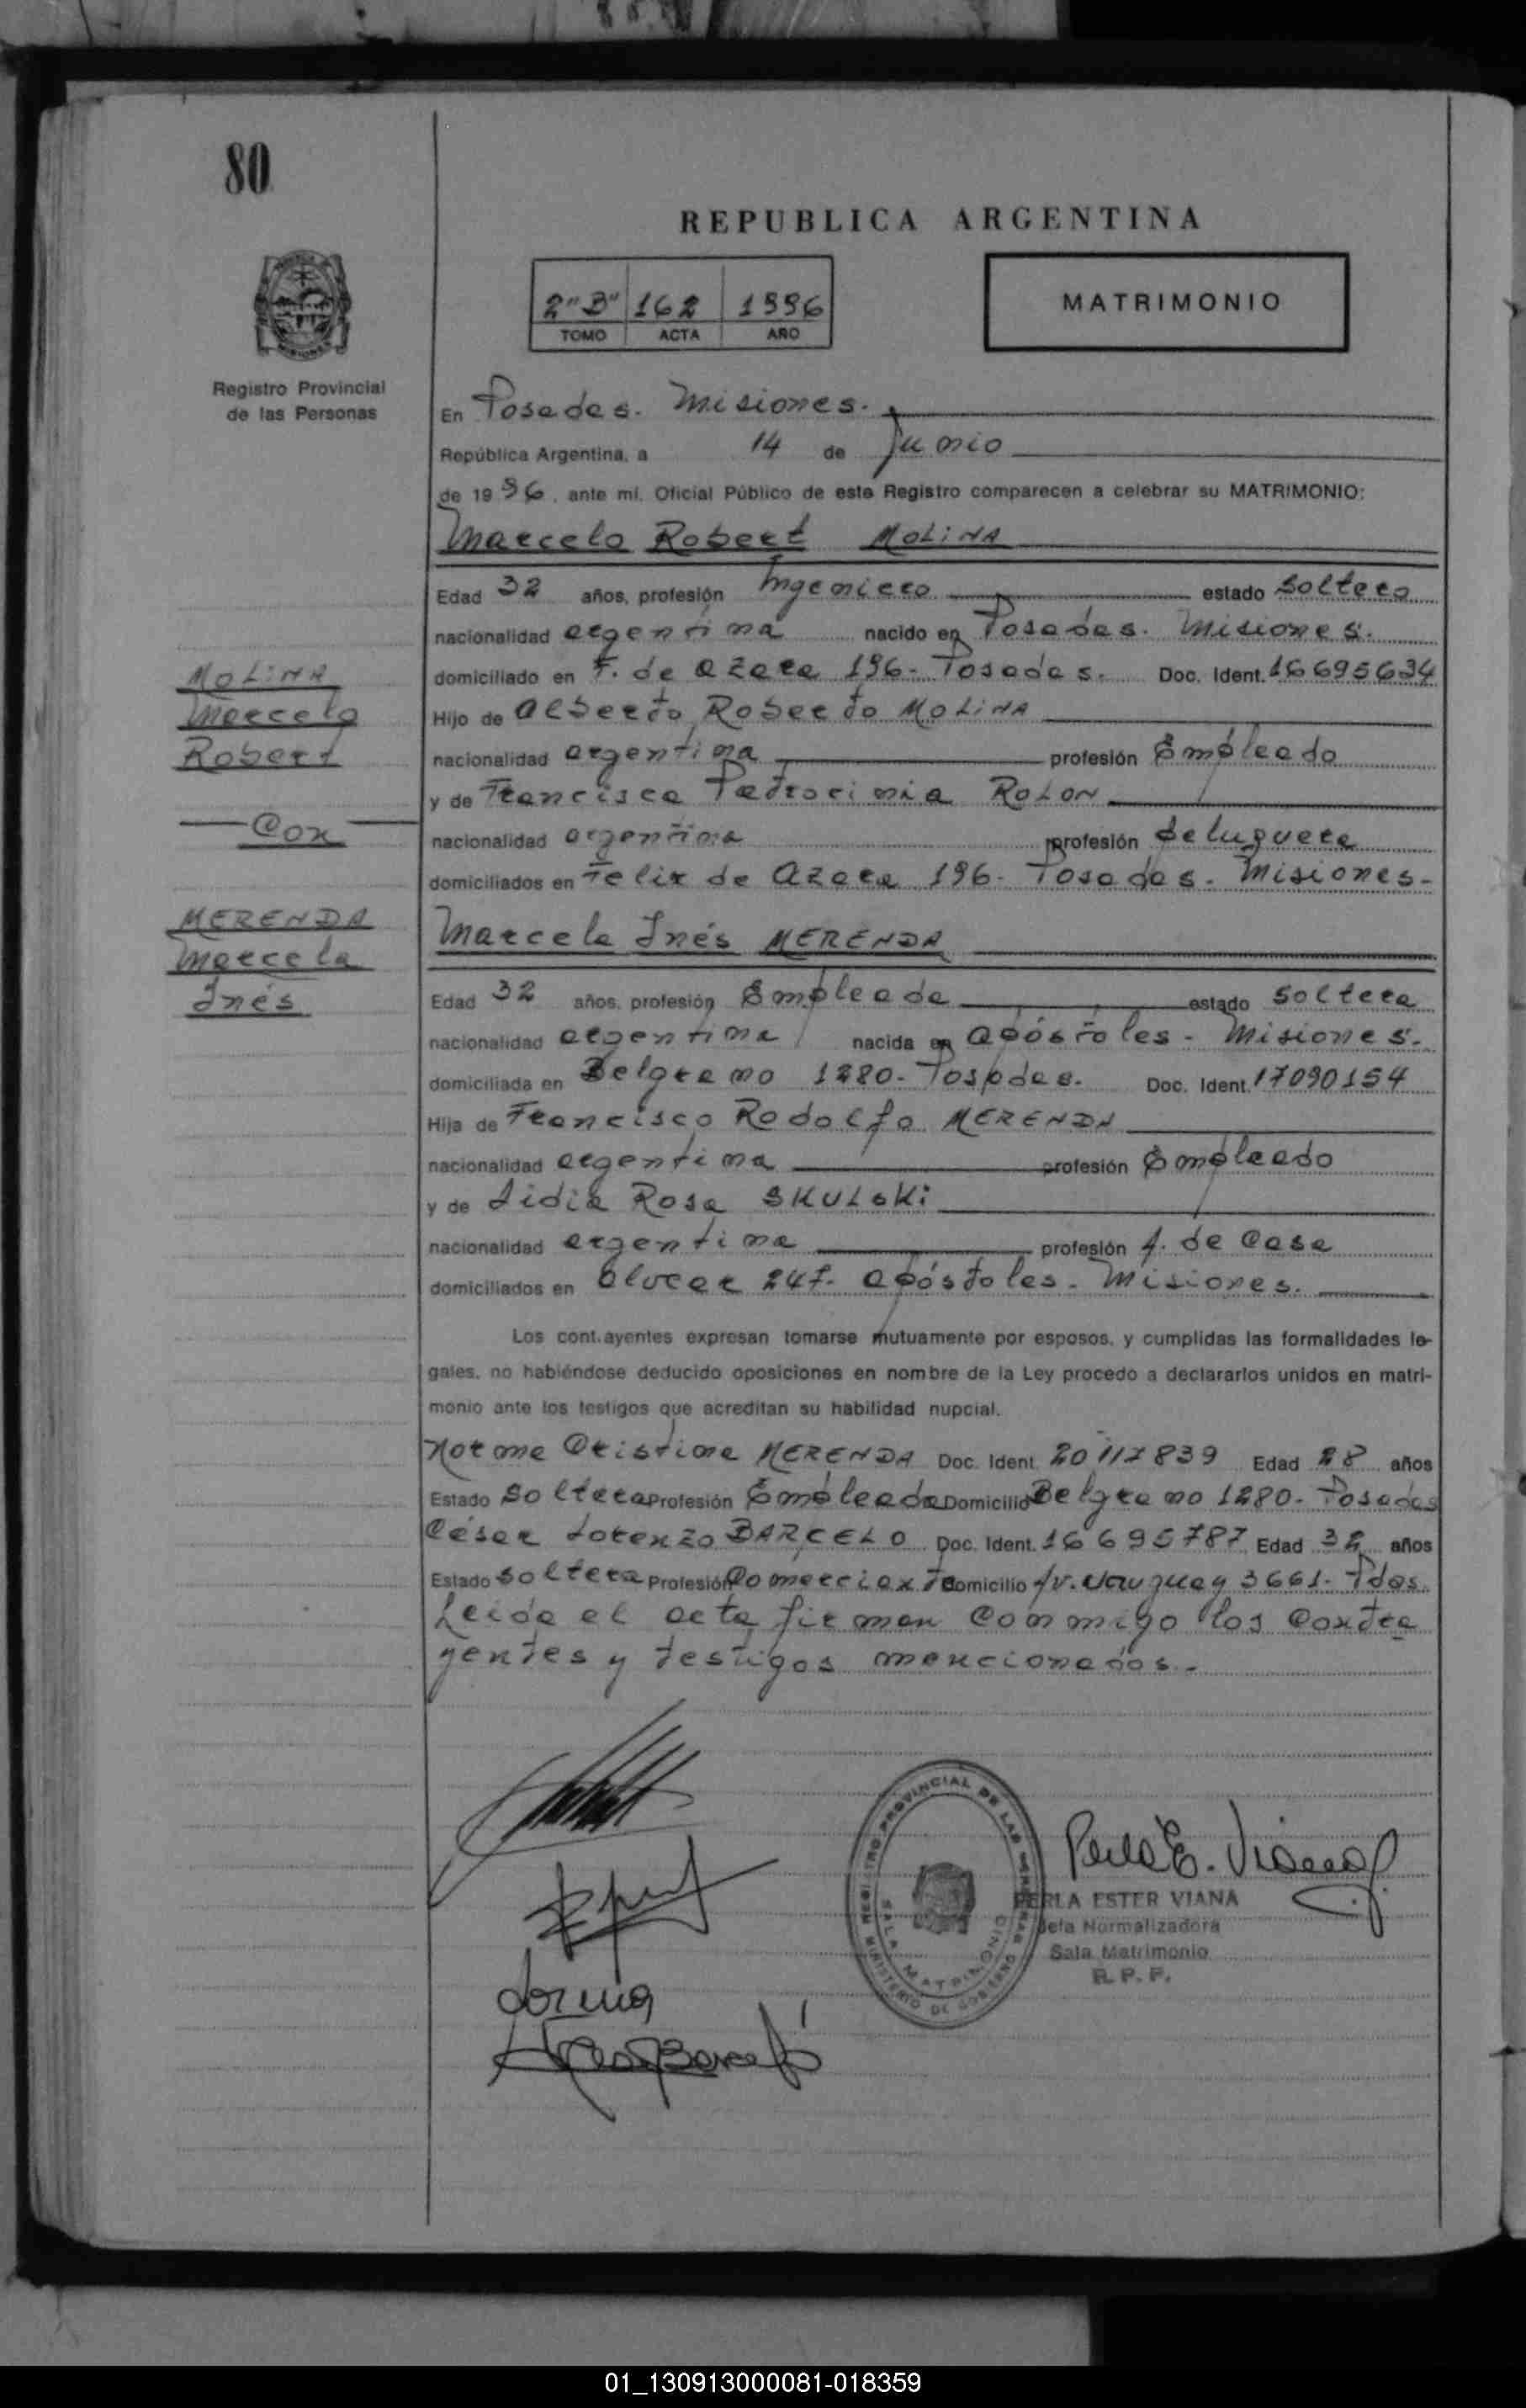 80
REPUBLICA ARGENTINA
2"B" 162 1996
TOMO ACTA AÑO
MATRIMONIO
Registro Provincial
de las Personas
En Posadas. Misiones.
República Argentina, a 14 de Junio
de 1996, ante mí, Oficial Público de este Registro comparecen a celebrar su MATRIMONIO:
Marcelo Robert MOLINA
Edad 32 años, profesión Ingeniero estado Soltero
nacionalidad argentina nacido en Posadas. Misiones.
domiciliado en F. de Azara 196- Posadas. Doc. Ident. 16695634
Hijo de Alberto Roberto MOLINA
nacionalidad argentina profesión Empleado
y de Francisca Patrocinia ROLON
nacionalidad argentina profesión Peluquera
domiciliados en Felix de Azara 196- Posadas- Misiones-
MOLINA
Marcelo
Robert
Con
MERENDA
Marcela
Inés
Marcela Inés MERENDA
Edad 32 años, profesión Empleada estado soltera
nacionalidad argentina nacida en Apóstoles- Misiones.
domiciliada en Belgrano 1280- Posadas. Doc. Ident. 17090154
Hija de Francisco Rodolfo MERENDA
nacionalidad argentina profesión Empleado
y de Lidia Rosa SKULSKi
nacionalidad argentina profesión A. de Casa
domiciliados en Alvear 247- Apóstoles- Misiones.
Los cont.ayentes expresan tomarse mutuamente por esposos, y cumplidas las formalidades le-
gales, no habiéndose deducido oposiciones en nombre de la Ley procedo a declararlos unidos en matri-
monio ante los testigos que acreditan su habilidad nupcial.
Norma Cristina MERENDA Doc. Ident. 20117839 Edad 28 años
Estado Soltera Profesión Empleada Domicilio Belgrano 1280- Posadas
César Lorenzo BARCELO Doc. Ident. 16695787 Edad 32 años
Estado soltero Profesión Comerciante Domicilio Av. Uruguay 3661- Pdas.
Leida el acta firman conmigo los contra
yentes y testigos mencionados.-
REGISTRO PROVINCIAL DE LAS PERSONAS
SALA MATRIMONIO
MINISTERIO DE GOBIERNO
Perla E. Viana
PERLA ESTER VIANA
Jefa Normalizadora
Sala Matrimonio
R. P. P.
Norma
01_130913000081-018359